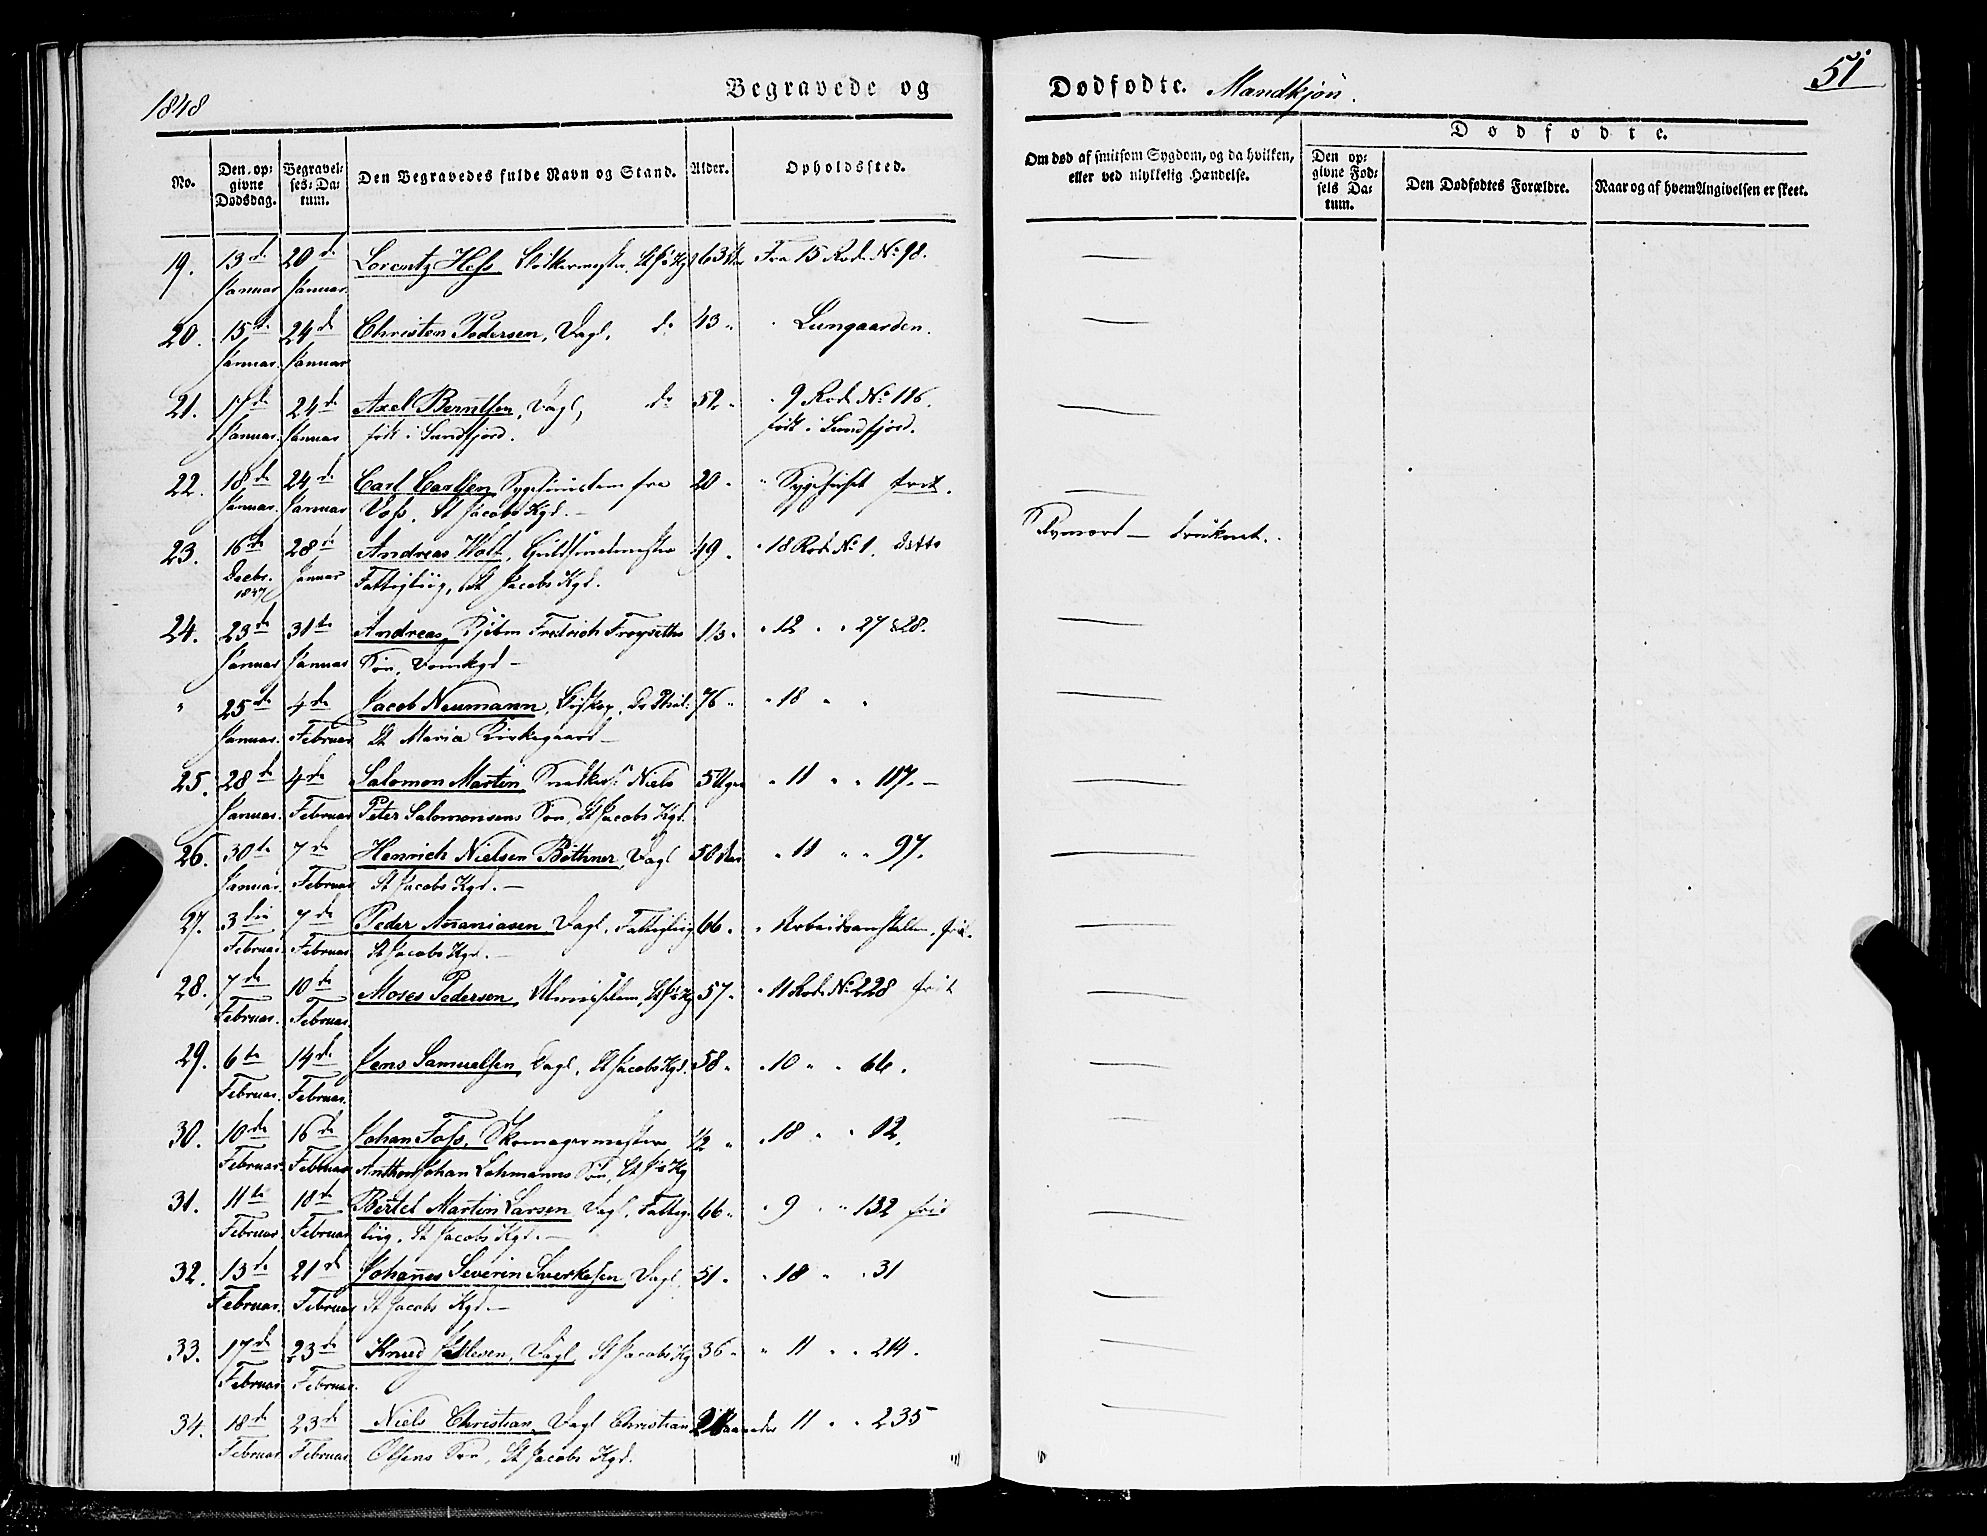 1848
Begravede og
Dødfødte. Mandkjøn.
51
No.
Den opgivne Dødsdag.
Begravelses-Datum.
Den Begravedes fulde Navn og Stand.
Alder.
Opholdssted.
Om død af smitsom Sygdom, og da hvilken, eller ved ulykkelig Hændelse.
Dødfødte.
Den opgivne Fødsels Datum.
Den Dødfødtes Forældre.
Naar og af hvem Angivelsen er skeet.
19. 13de 20de Lorentz Hess, St J's Kgd 63 Aar Fra 15 Rode No 98.
Januar Januar.
20. 15de 24de Christen Pedersen, Dagl. do 43 " " Lungaarden.
Januar. Januar
21. 17de 24de Axel Berntsen, Dagl, do 52 " " 9 Rode No 116.
Januar. Januar født i Sundfjord. født i Sundfjord.
22. 18de 24de Carl Carlsen, fra 20 " " Sygehuset frit.
Januar. Januar Voss, St Jacobs Kgd. —
23. 16de 28de Andreas Wolf, 49 " " 18 Rode No 1. ditto
Decbr. Januar Fattiglig, St Jacobs Kgd.
1847
Selvmord — druknet.
24. 23de 31te Andreas, Kjøbm Fredrich Froyseths 1/3 " " 12 " " 27 & 28.
Januar Januar Søn, Domkgd —
" 25de 4de Jacob Neumann, Biskop, Dr Phil: 76 " " 18 " "
Januar. Februar St Maria Kirkegaard —
25. 28de 4de Salomon Martin, Snedkers: Niels 5 Uger " 11 " " 117. —
Januar. Februar Peter Salomonsens Søn, St Jacobs Kgd.
26. 30te 7de Henrich Nielsen Bøthner, Dagl 50 Aar " 11 " " 97.
Januar. Februar St Jacobs Kgd. —
27. 3die 7de Peder Annaniasen, Dagl, Fattiglig 66 " " Arbeidsanstalten, frit.
Februar Februar St Jacobs Kgd. —
28. 7de 10de Moses Pedersen, Almisselem, St J's Kg 57 " " 11 Rode No 228 frit
Februar. Februar.
29. 6te 14de Jens Samuelsen, Dagl, St Jacobs Kgd. 58 " " 10 " " 66.
Februar. Februar.
30. 10de 16de Johan Foss, Skomagermester 1/2 " " 18 " " 12.
Februar. Februar Anthon Johan Lohmanns Søn, St J's Kg
31. 11te 18de Bertel Martin Larsen, Dagl, Fattig- 66 " " 9 " " 132 frit
Februar Februar lig, St Jacobs Kgd. —
32. 13de 21de Johannes Severin Sverkesen, Dagl 51 " " 18 " " 31
Februar. Februar St Jacobs Kgd. —
33. 17de 23de Knud Dagl, St Jacobs Kg 36 " " 11 " " 214.
Februar Februar.
34. 18de 23de Niels Christian, Dagl Christian Maaneder 11 " " 235
Februar Februar Olsens Søn, St Jacobs Kgd.